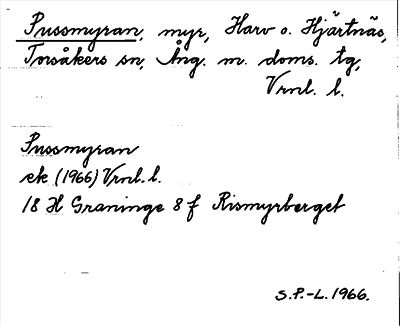 Pussmyran, myr, Harv o. Hjärtnäs,
Torsåkers sn, Ång. m. doms. tg,
Vrnl. l.
Pussmyran
ek (1966) Vrnl. l.
18 H Graninge 8 f Rismyrberget
S.P.-L. 1966.